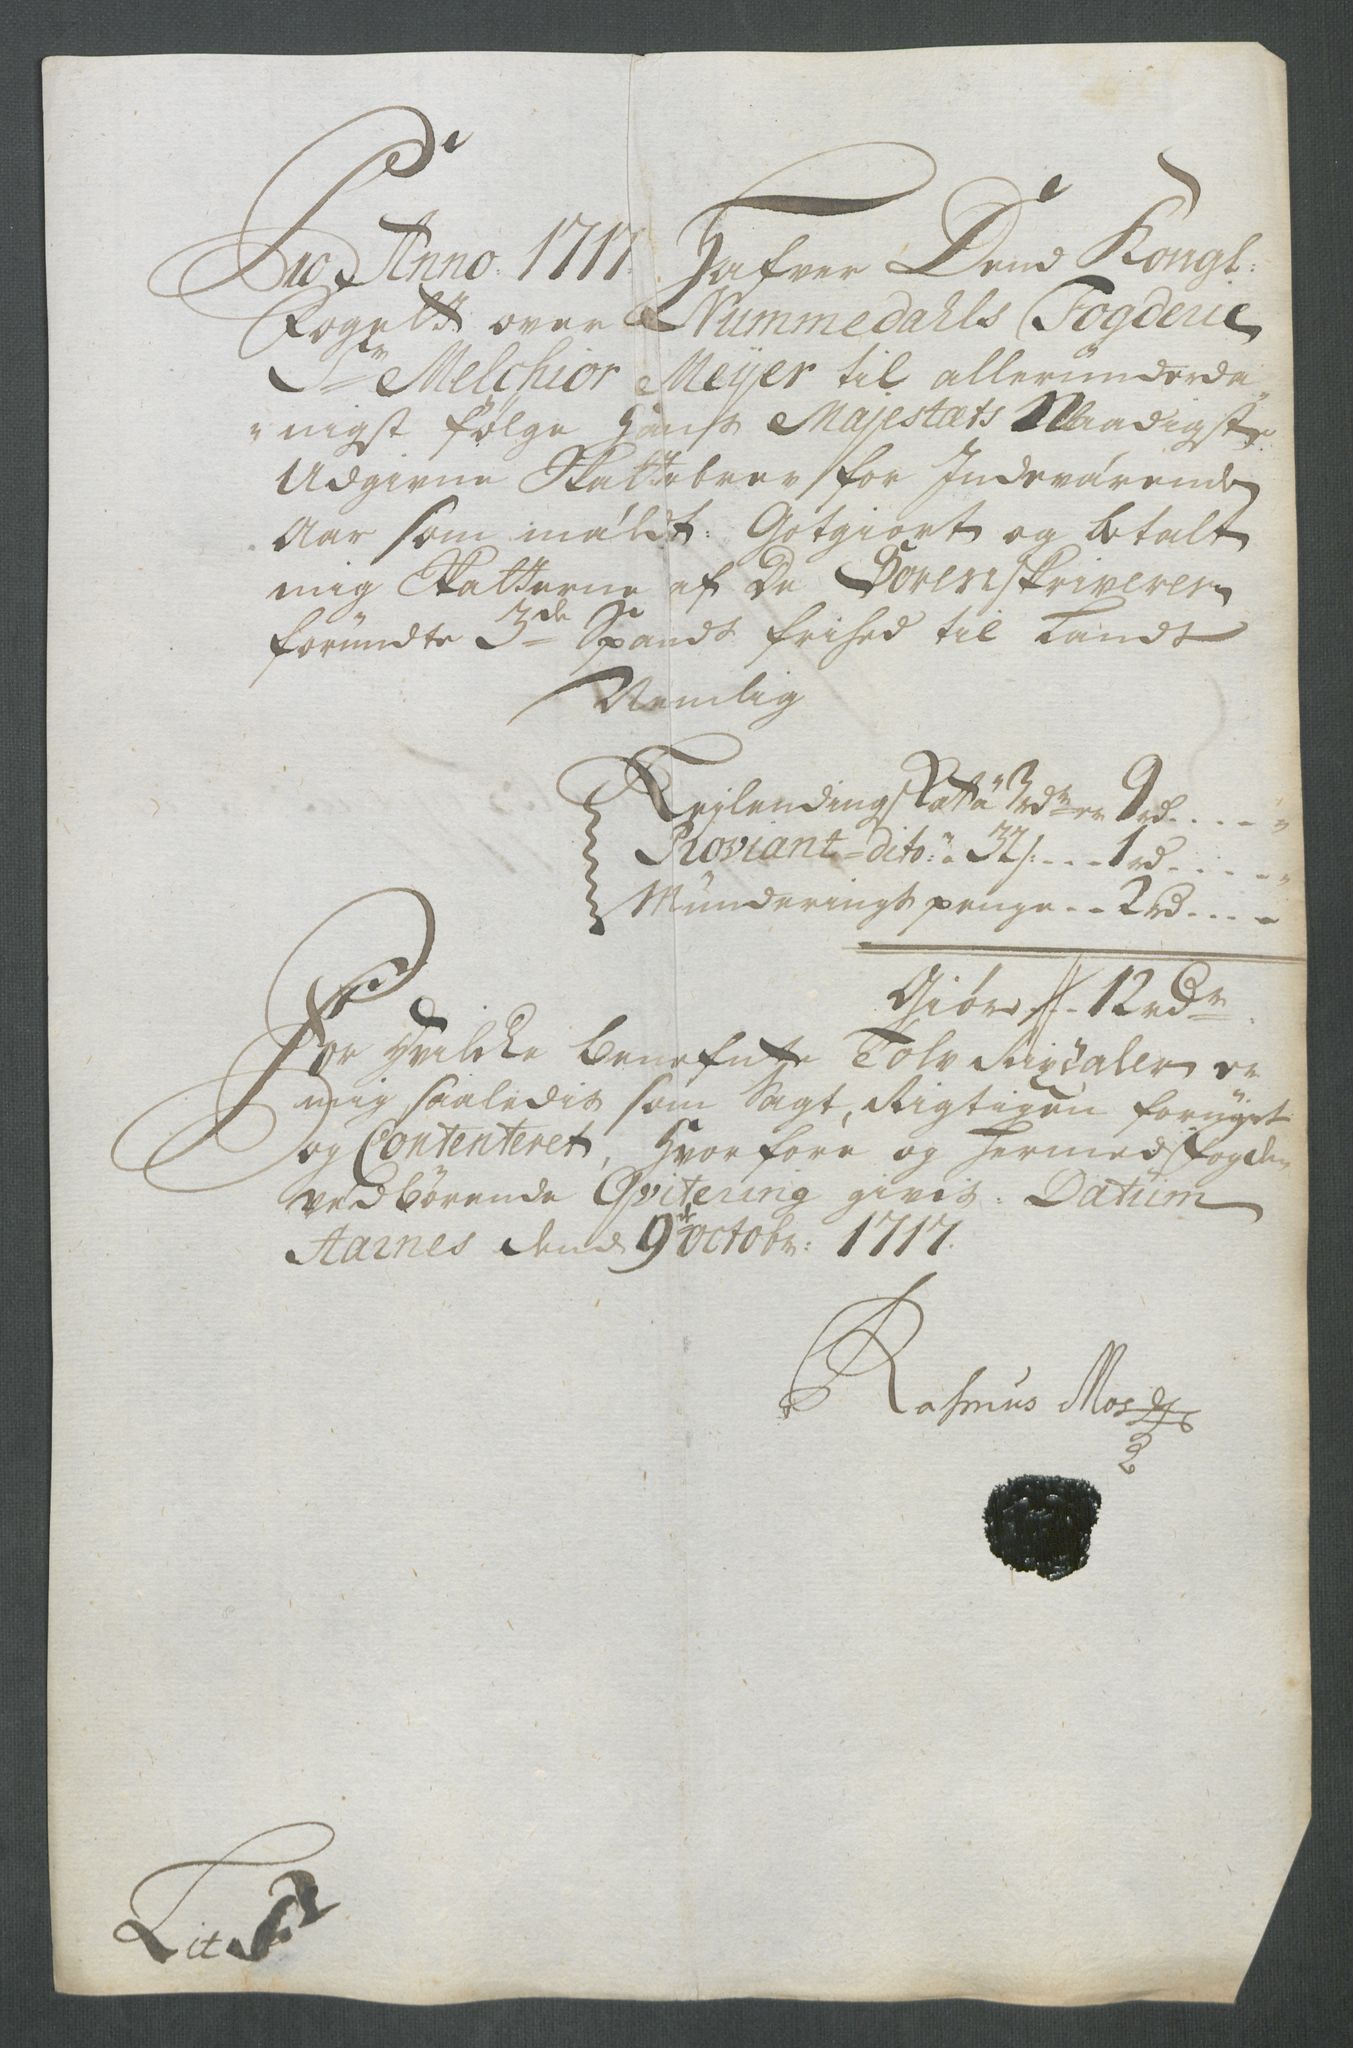 Pro Anno: 1717. Hafver Dend Kongl:
Fogett over Nummedahls Fogderie
Sr Melchior Meÿer til allerunderda-
nigst følge Hans Majestæts Naadigste
Udgivne Skattebrev for Indeværende
Aar som meldt: Gotgiort og betalt
mig Skatterne af De Sorenskriveren
forundte 3de Spands frihed til Landt
Nemlig
Leilendingskatt â 3rdr er 9rd
Proviant-dito: â 32s: 1rd
Munderings penge 2rd
Giør 12rdr
For hvilcke benefnte Tolv Rixdaler er
mig saaledis som Sagt, Rigtigen fornÿget
og Contenteret, Hvorfore og hermed fogden
vedbørende Qvitering givis. Datum
Aarnes dend 9de octobr: 1717.
Rasmus
Lit